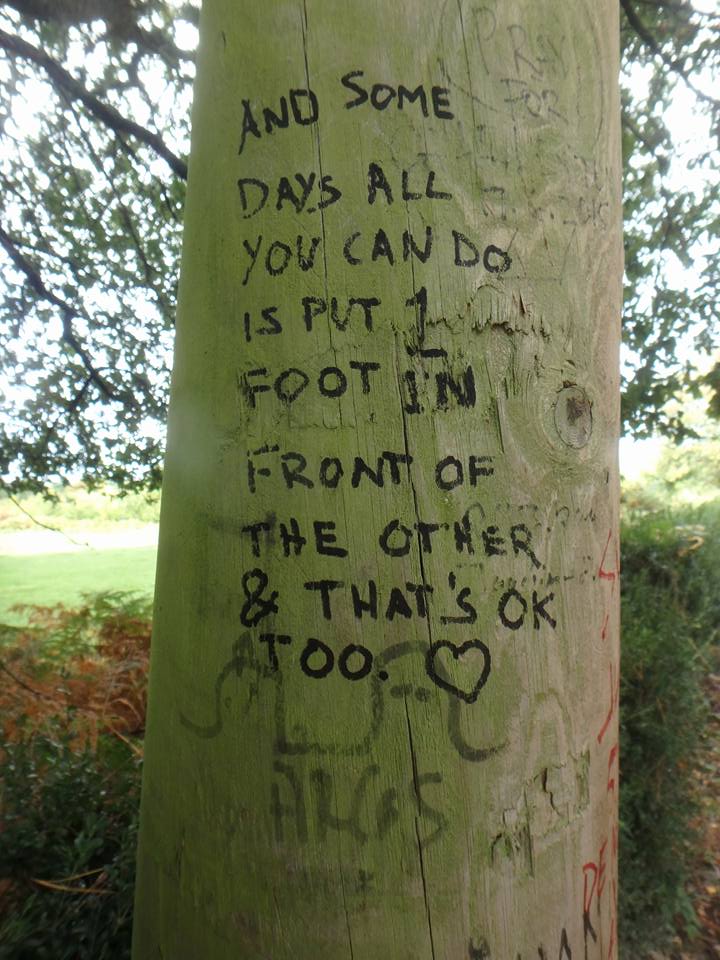 AND SOME
DAYS ALL
YOU CAN DO
IS PUT 1
FOOT IN
FRONT OF
THE OTHER
& THAT'S OK
TOO. ♡